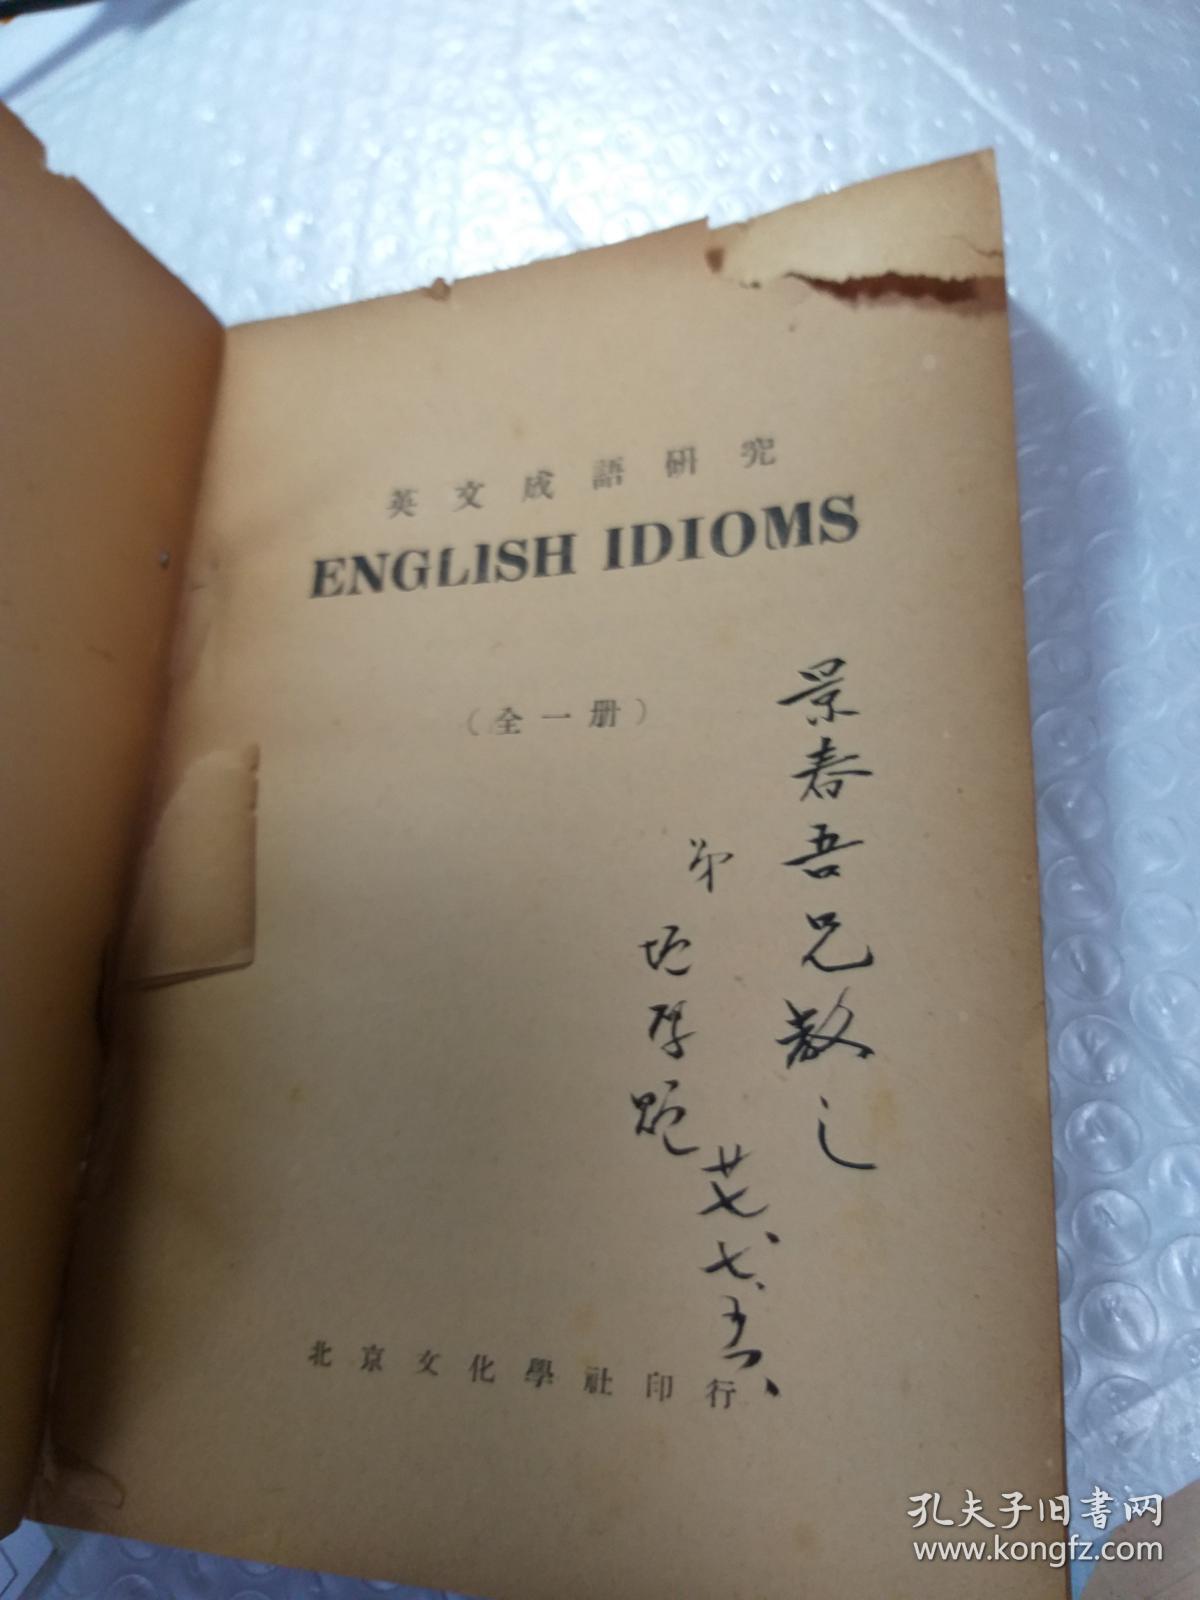 英文成語研究
ENGLISH IDIOMS
（全一册）
景春吾兄教之
弟
廿七、七、五、
北京文化學社印行
孔夫子旧书网
www.kongfz.com